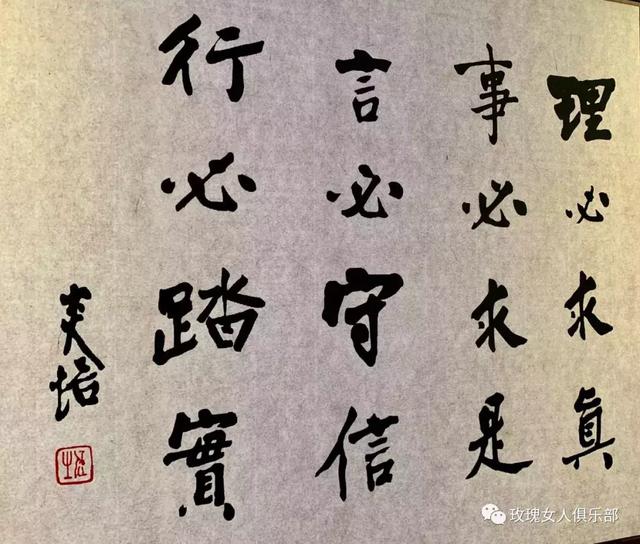 理必求眞
事必求是
言必守信
行必踏實
玫瑰女人俱乐部